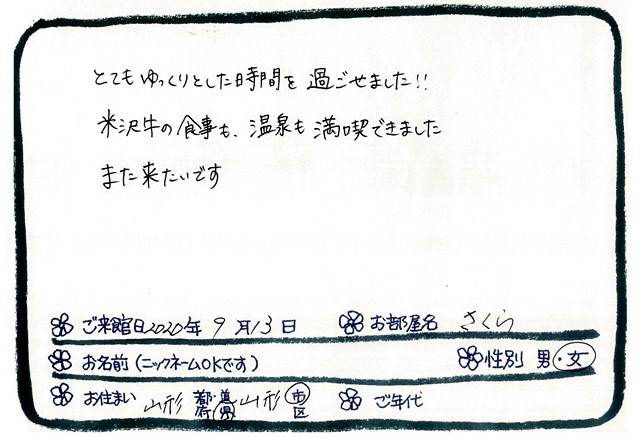 とてもゆっくりとした時間を過ごせました!!
米沢牛の食事も、温泉も満喫できました
また来たいです
ご来館日2020年9月13日 お部屋名 さくら
お名前(ニックネームOKです) 性別 男・女
お住まい 山形 都・道・府・県 山形 市・区 ご年代